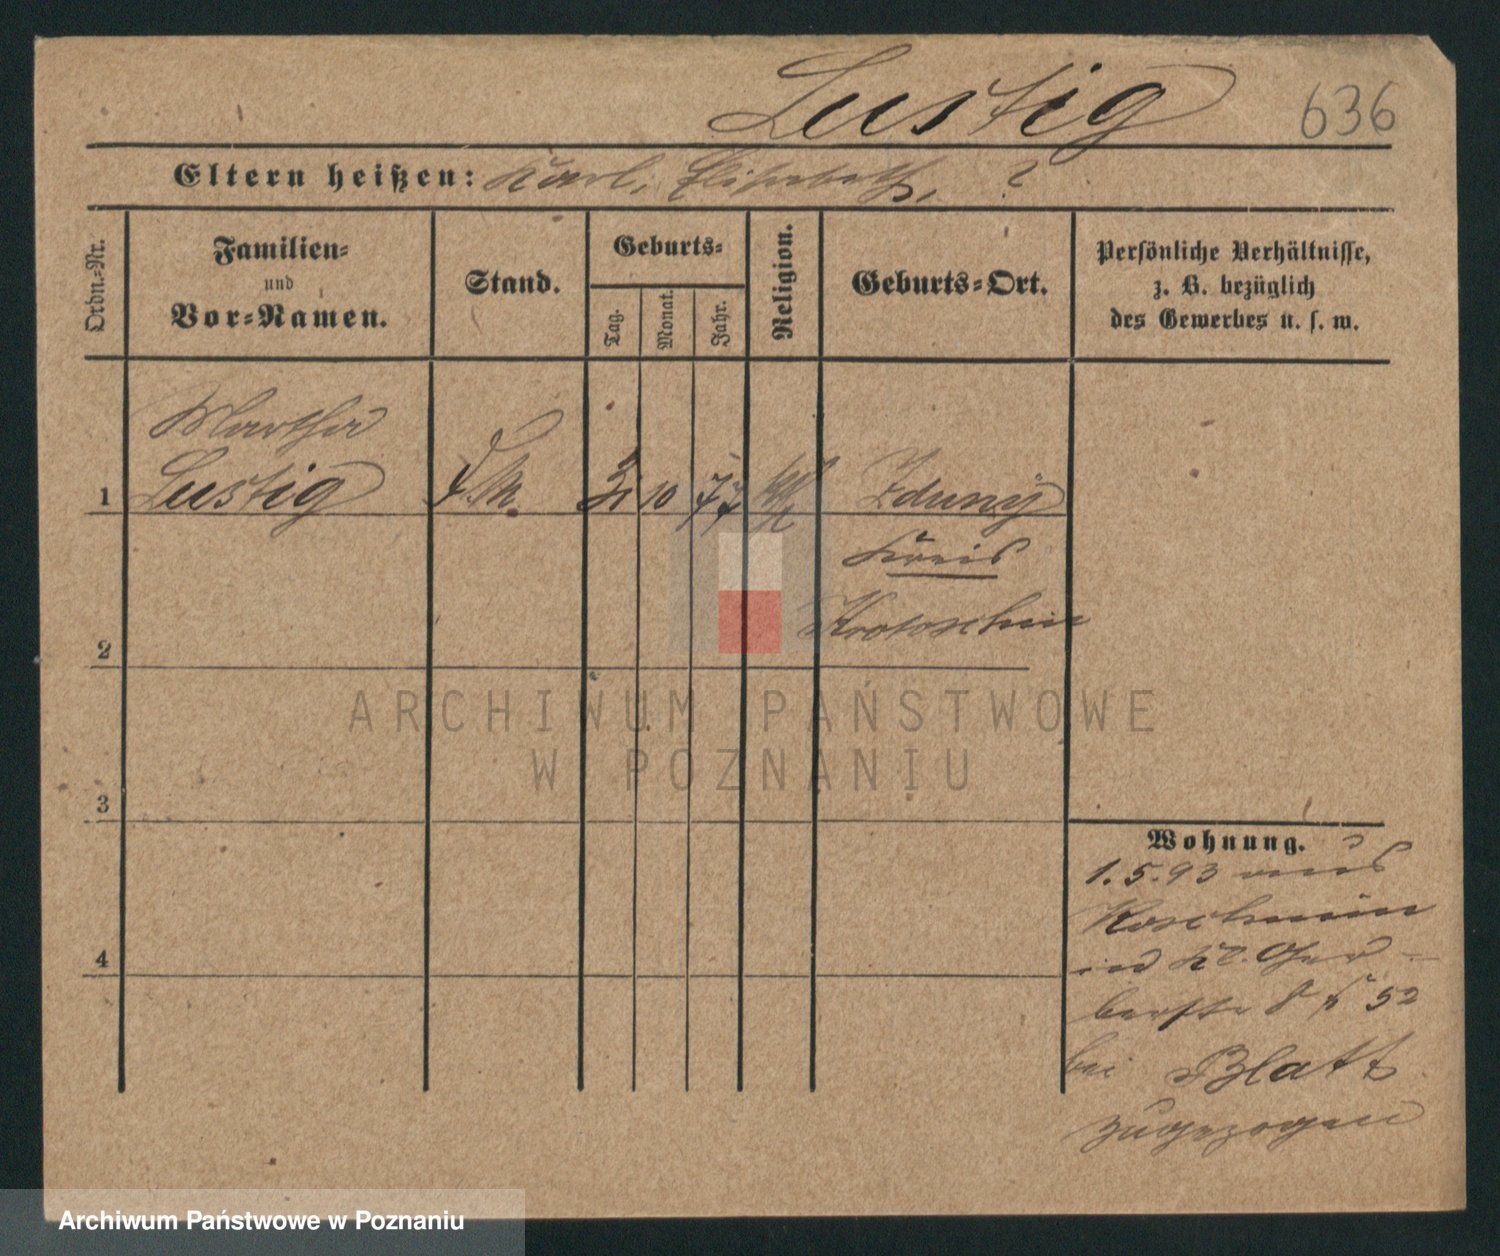 Lustig 636
Eltern heißen: Karl, Elisabeth, ?
Ordn.-Nr.
Familien-
und
Vor-Namen.
Stand.
Geburts-
Tag.
Monat.
Jahr.
Religion.
Geburts-Ort.
Persönliche Verhältnisse,
z. B. bezüglich
des Gewerbes u. s. w.
Martha
1 Lustig D.M. 31 10 77 Zduny
Kreis
Krotoschin
2
3
4
Wohnung.
1.5.93 aus
Koschmin
in Kl. Ger-
berstr 8 52
bei Blatt
zugezogen
ARCHIWUM PAŃSTWOWE
W POZNANIU
Archiwum Państwowe w Poznaniu